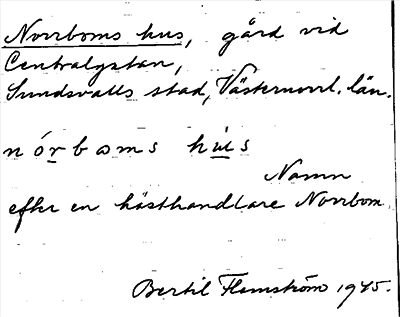 Norrboms hus, gård vid
Centralgatan,
Sundsvalls stad, Västernorrl. län.
nórboms hùs
Namn
efter en hästhandlare Norrbom.
Bertil Flemström 1945.